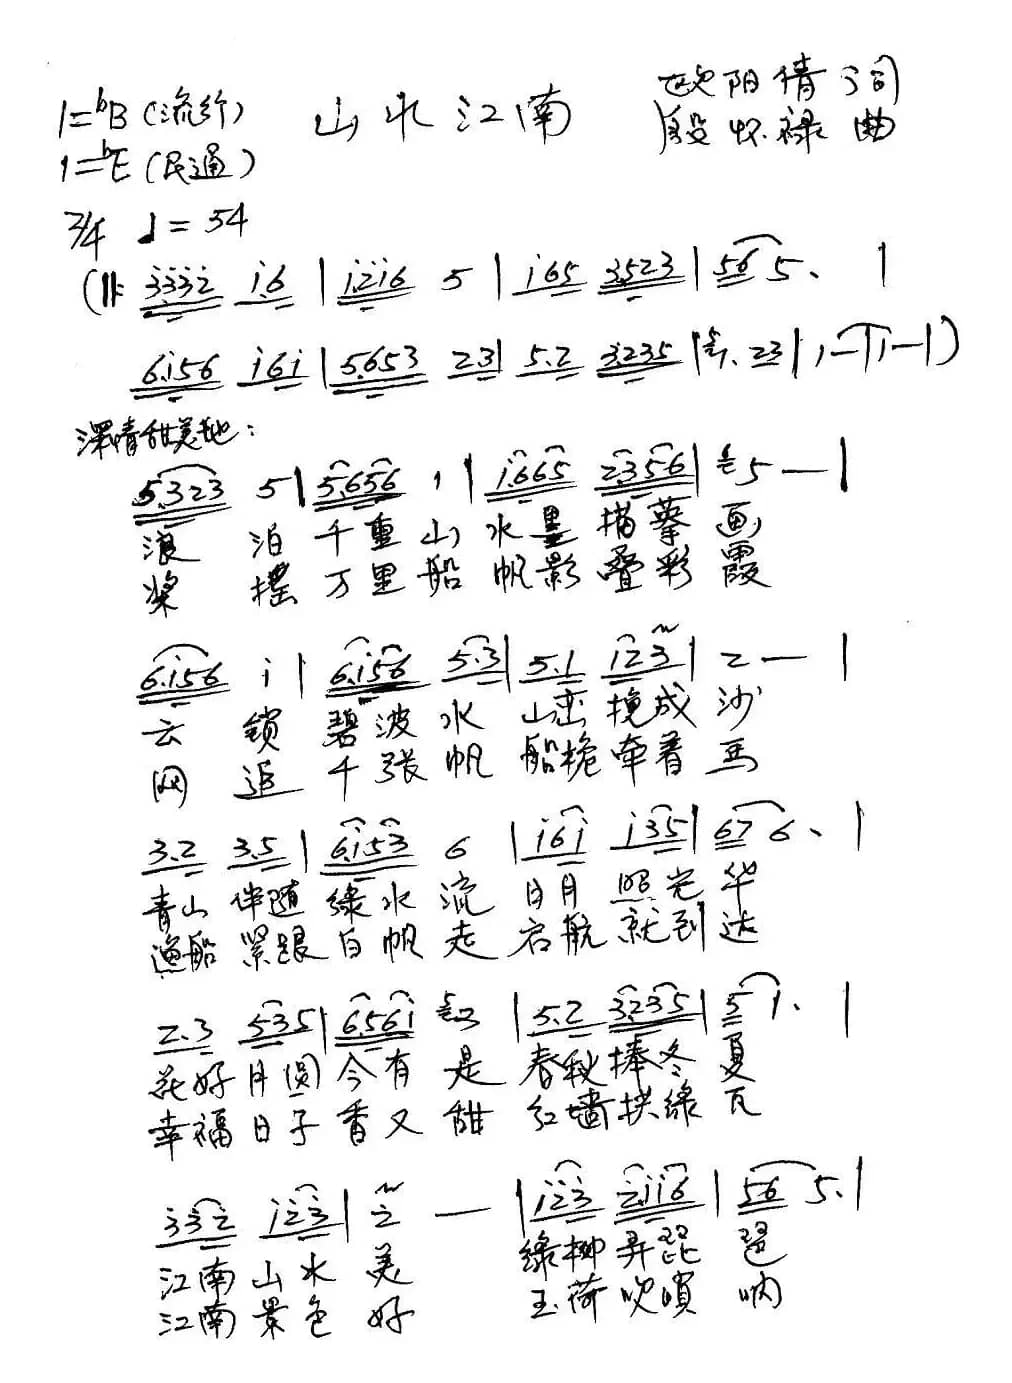 1=ᵇB（流行） 山水江南 欧阳倩词
1=ᵇE（民通） 段怀禄曲
2/4 ♩=54
(‖: 3̇3̇3̇2̇ i.6 | i.2̇i6 5 | i65 3.523 | 565. |
6.i56 i6i | 5.653 2.3 | 5.2 3.235 | 1.23 | 1— | 1—|)
深情甜美地：
5.323 5 | 5.656 1 | i.665 2356 | 5— |
浪 泊 千重山 水墨描摹 画
桨 摇 万里船 帆影叠彩 霞
6.i56 i | 6.i56 5.3 | 5.1 123 | 2— |
云 锁 碧波水 山峦挽成 沙
网 追 千张帆 船桅牵着 马
3.2 3.5 | 6.i53 6 | i6i i35 | 676. |
青山伴随绿水流 日月照光华
渔船紧跟白帆走 启航就到达
2.3 535 | 6.56i 2 | 5.2 3.235 | 51. |
花好月圆今有是 春秋捧冬夏
幸福日子香又甜 红墙拱绿瓦
3̇3̇2̇ i2̇3̇ | 2̇ — | i2̇3̇ 2̇ii6 | 565. |
江南山水美 绿柳弄琵琶
江南景色好 玉荷吹唢呐